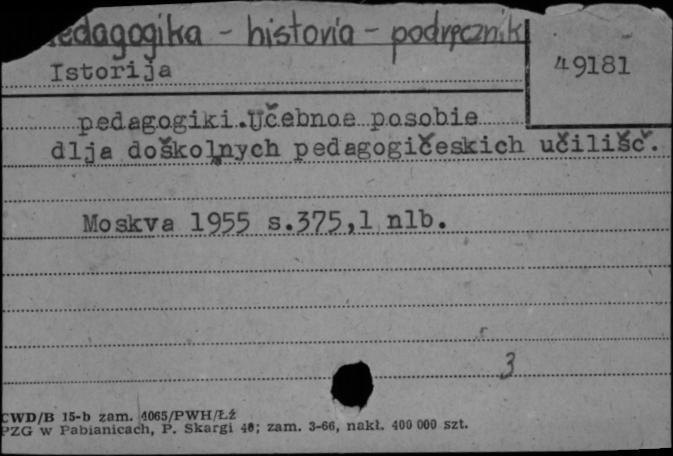 Pedagogika - historia - podręcznik
Istorija
49181
pedagogiki.Učebnoe posobie
dlja doškolnych pedagogičeskich učilišč.
Moskva 1955 s.375,1 nlb.
3
CWD/B 15-b zam. 4065/PWH/Łź
PZG w Pabianicach, P. Skargi 40; zam. 3-66, nakł. 400 000 szt.